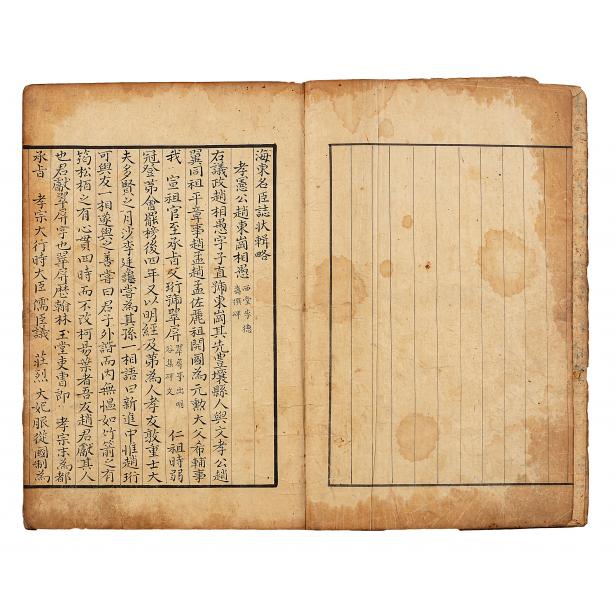 海東名臣誌狀輯略
孝憲公趙東崗相愚 西堂李德壽撰碑
右議政趙相愚字子直號東崗其先豊壤縣人與文孝公趙
翼同祖平章事趙孟趙孟佐麗祖開國為元勳大父希輔事
我 宣祖官至承旨父珩號翠屏 翠屏事出明谷集碑文 仁祖時弱
冠登第會罷榜後四年又以明經及第為人孝友敦重士大
夫多賢之月沙李廷龜嘗為其孫一相語曰新進中惟趙珩
可與友一相與之善嘗曰君子外謟而內無慍如竹箭之有
筠松栢之有心貫四時而不改柯易葉者吾友趙君獻其人
也君獻翠屏字也翠屏歷翰林玉堂吏曹郎 孝宗末為都
承旨 孝宗大行時大臣儒臣議 莊烈大妃服從國制為